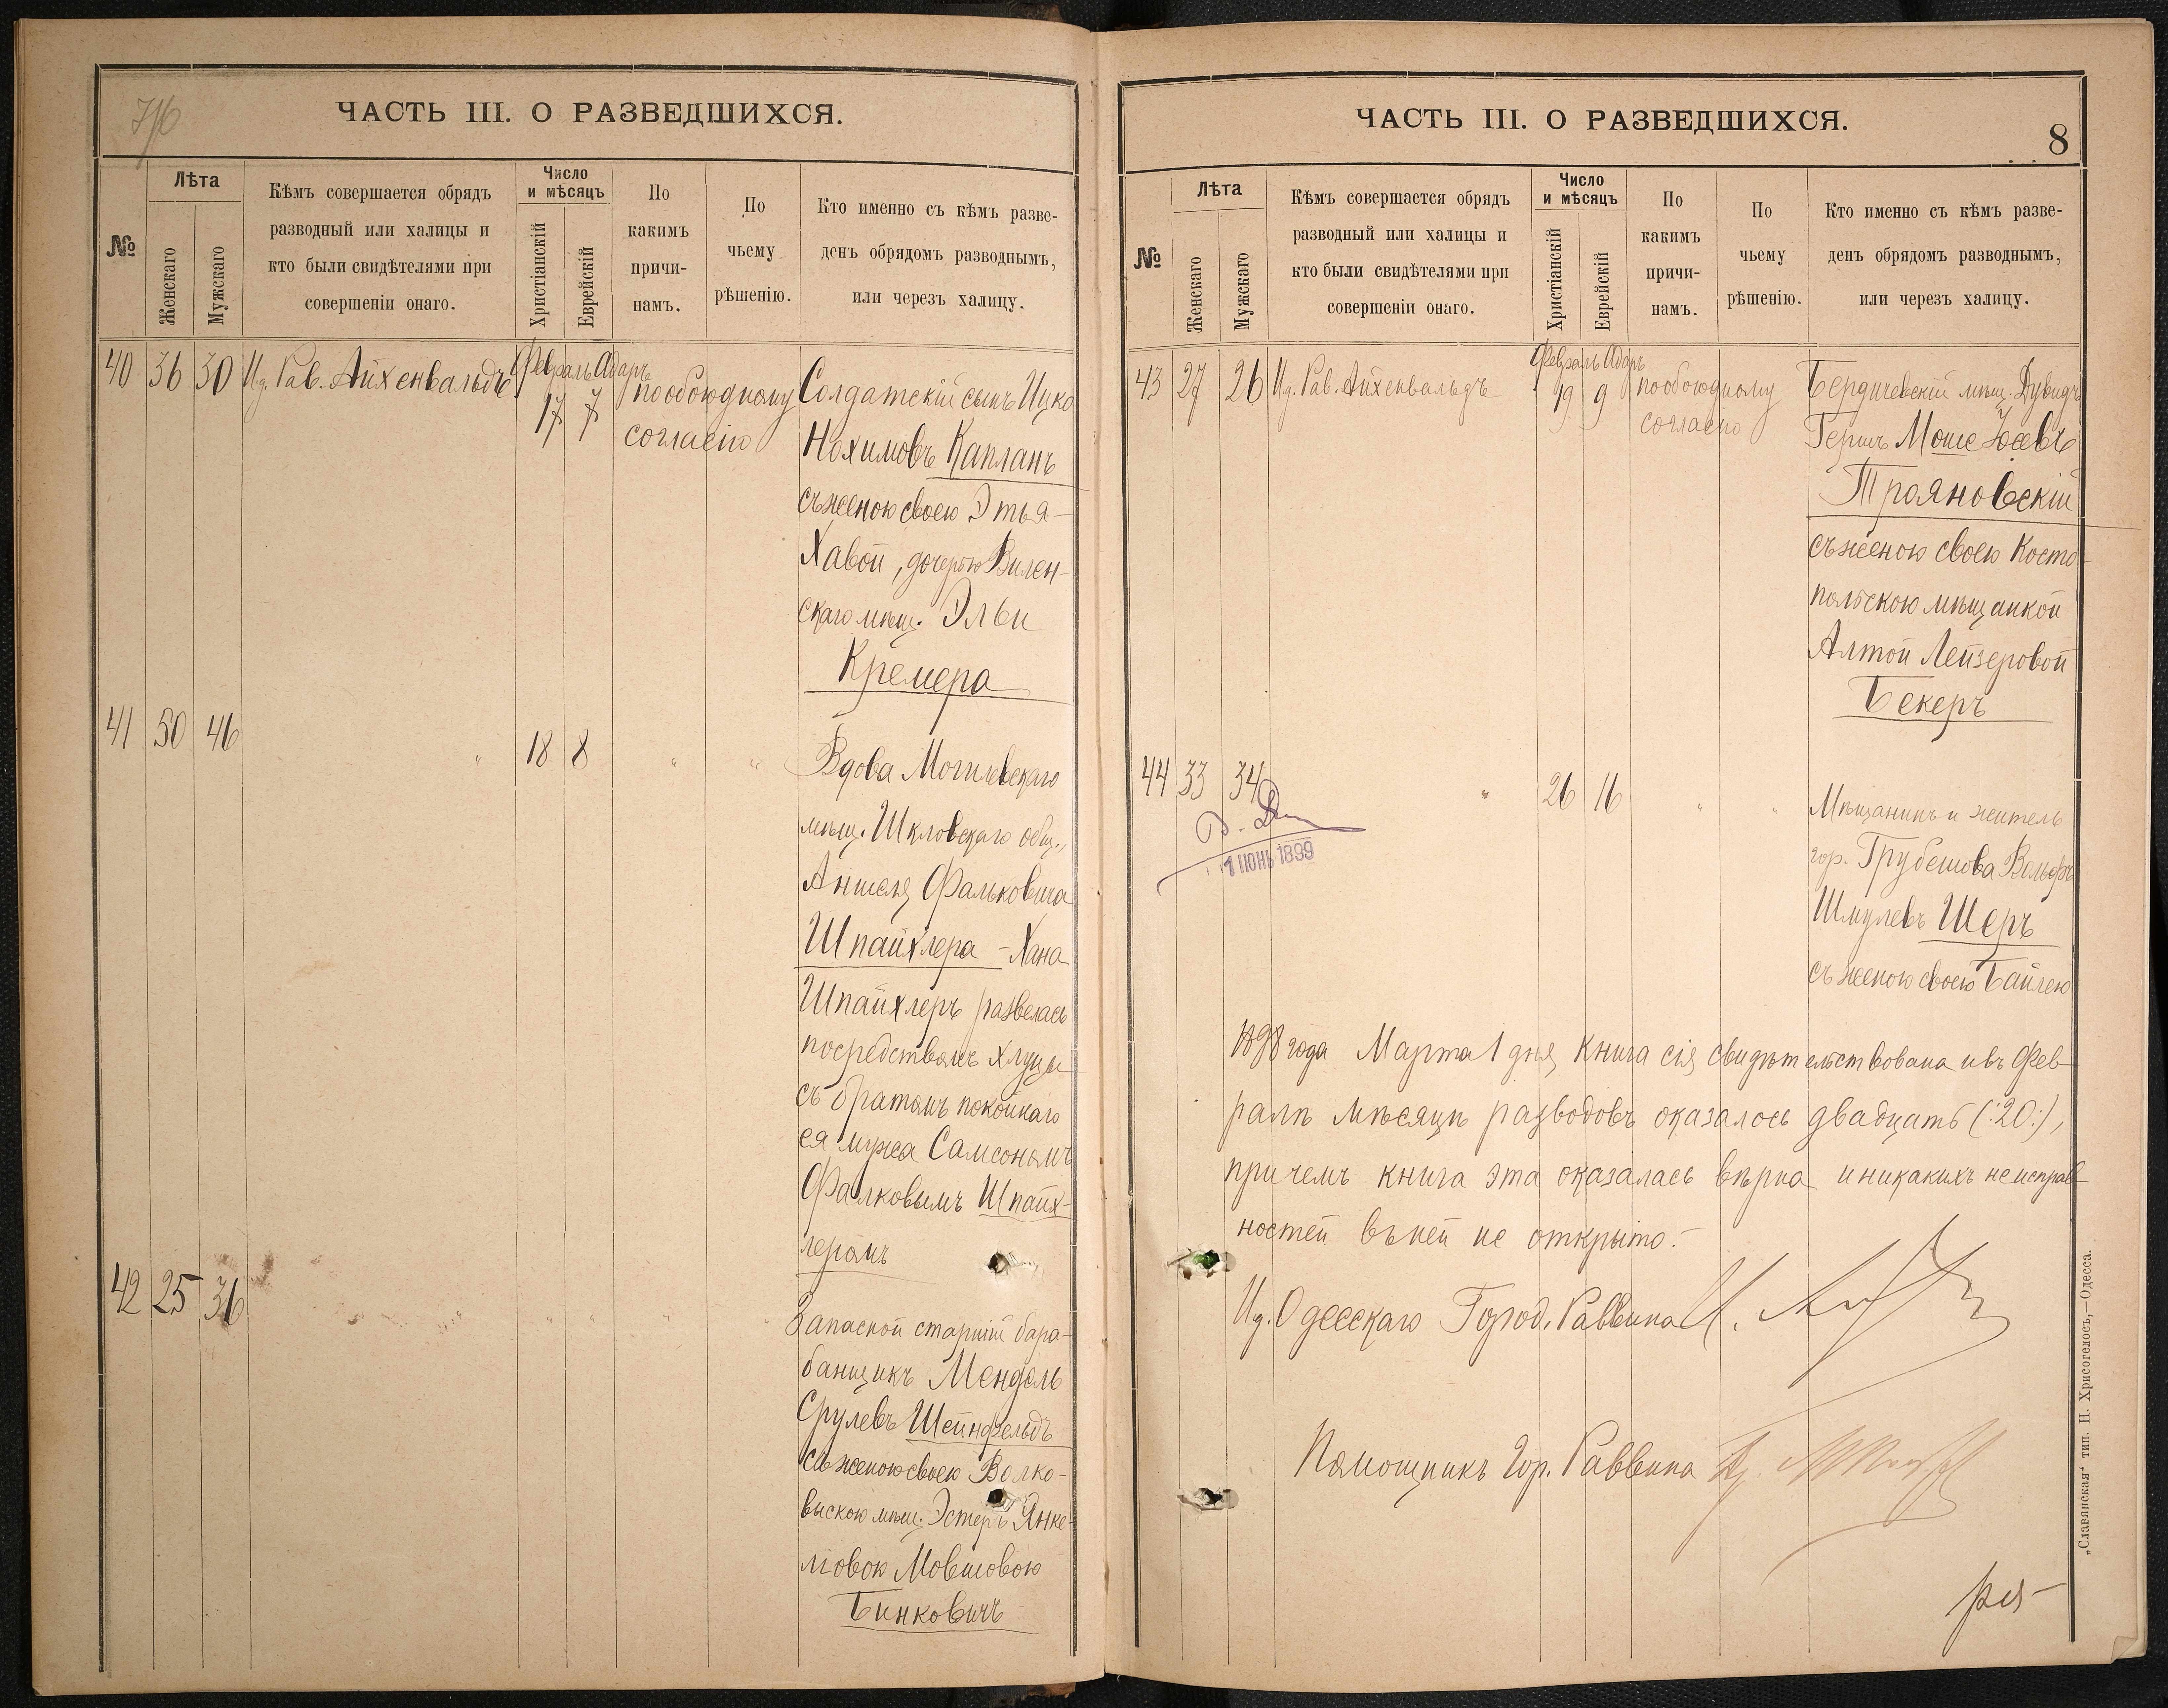 ЧАСТЬ III. О РАЗВЕДШИХСЯ.
№
Лѣта
Женскаго
Мужскаго
Кѣмъ совершается обрядъ
разводный или халицы и
кто были свидѣтелями при
совершеніи онаго.
Число
и мѣсяцъ
Христіанскій
Еврейскій
По
какимъ
причи-
намъ.
По
чьему
рѣшенію.
Кто именно съ кѣмъ разве-
денъ обрядомъ разводнымъ,
или черезъ халицу.
40 36 30 Ид. Рав. Айхенвальдъ Февраль Адаръ
17 7
по обоюдному
согласію
Солдатскій сынъ Ицко
Нохимовъ Капланъ
съ женою своею Этья-
Хавой, дочерью Вилен-
скаго мѣщ. Эльи
Кремера
41 50 46 " 18 8 " "
Вдова Могилевскаго
мѣщ. Шкловскаго общ.,
Аншеля Фальковича
Шпайхлера - Хана
Шпайхлеръ развелась
посредствомъ хлицы
съ братомъ покойнаго
ея мужа Самсономъ
Фалковымъ Шпайх-
леромъ
42 25 36 " " " " "
Запасной старшій бара-
банщикъ Мендель
Срулевъ Шейнфельдъ
съ женою своею Волко-
выскою мѣщ. Эстеръ Янке-
левою Мовшовою
Бинковичъ
ЧАСТЬ III. О РАЗВЕДШИХСЯ.
8
№
Лѣта
Женскаго
Мужскаго
Кѣмъ совершается обрядъ
разводный или халицы и
кто были свидѣтелями при
совершеніи онаго.
Число
и мѣсяцъ
Христіанскій
Еврейскій
По
какимъ
причи-
намъ.
По
чьему
рѣшенію.
Кто именно съ кѣмъ разве-
денъ обрядомъ разводнымъ,
или черезъ халицу.
43 27 26 Ид. Рав. Айхенвальдъ Февраль Адаръ
19 9
по обоюдному
согласію
Бердичевскій мѣщ. Дувидъ
Гершъ Моше Іосевъ
Трояновскій
съ женою своею Косто-
польскою мѣщанкой
Алтой Лейзеровой
Бекеръ
44 33 34 " 26 16 " "
1 ІЮНЬ 1899
Мѣщанинъ и житель
гор. Грубешова Вольфъ
Шмулевъ Шеръ
съ женою своею Байлею
1898 года Марта 1 дня книга сія свидѣтельствована и въ Фев-
ралѣ мѣсяцѣ разводовъ оказалось двадцать (:20:),
при чемъ книга эта оказалась вѣрна и никакихъ неисправ-
ностей въ ней не открыто.-
Ид. Одесскаго Город. Раввина
Помощникъ Гор. Раввина
„Славянская" тип. Н. Хрисогелосъ,—Одесса.